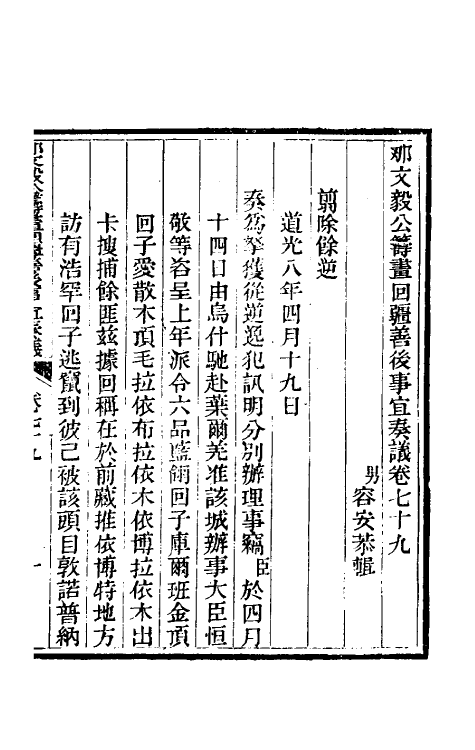 那文毅公籌畫回疆善後事宜奏議卷七十九
男容安恭輯
翦除餘逆
道光八年四月十九日
奏爲拏獲從逆逸犯訊明分別辦理事竊臣於四月
十四日由烏什馳赴葉爾羌准該城辦事大臣恒
敬等咨呈上年派令六品藍翎回子庫爾班金頂
回子愛散木頂毛拉依布拉依木依博拉依木出
卡搜捕餘匪茲據回稱在於前藏推依博特地方
訪有浩罕回子逃竄到彼已被該頭目敦諾普納
卷七十九
一